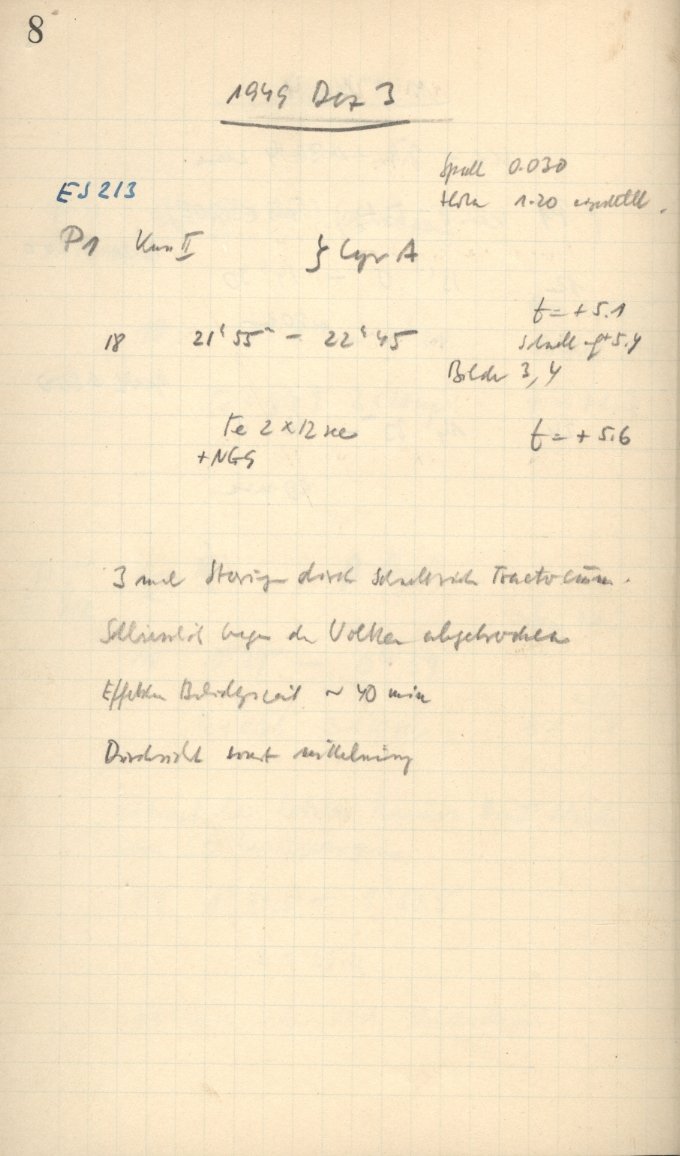 8
1949 Dez 3
Spalt 0.030
Höhe 1.20 eingestellt.
ES 213
P1 Kam II ζ Lyr A
t = + 5.1
18 21ʰ 55ᵐ – 22ʰ 45
Schnell auf + 5.4
Bilder 3, 4
Fe 2 × 12 sec
+NGG
t = + 5.6
3 mal Störung durch Tractorium.
Schliesslich wegen der Wolken abgebrochen
Effektive Belichtgszeit ~ 40 min
Durchsicht sonst mittelmässig